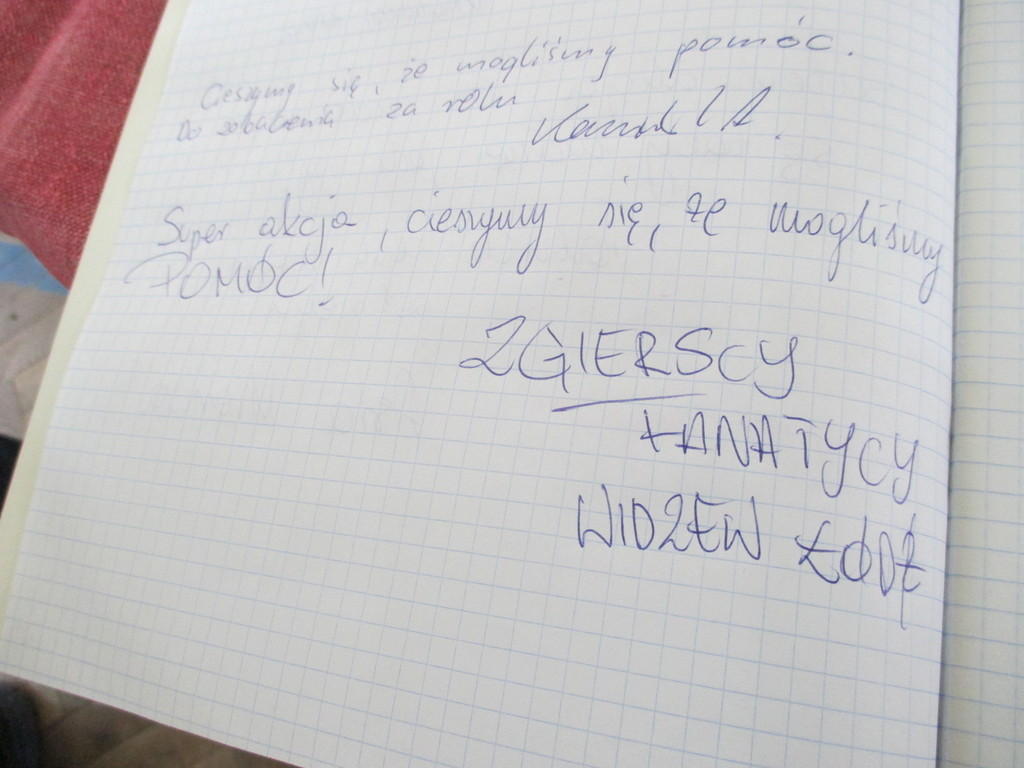 Cieszymy się, że mogliśmy pomóc.
Do zobaczenia za roku
Super akcja, cieszymy się, że mogliśmy
POMÓC!
ZGIERSCY
FANATYCY
WIDZEW ŁÓDŹ